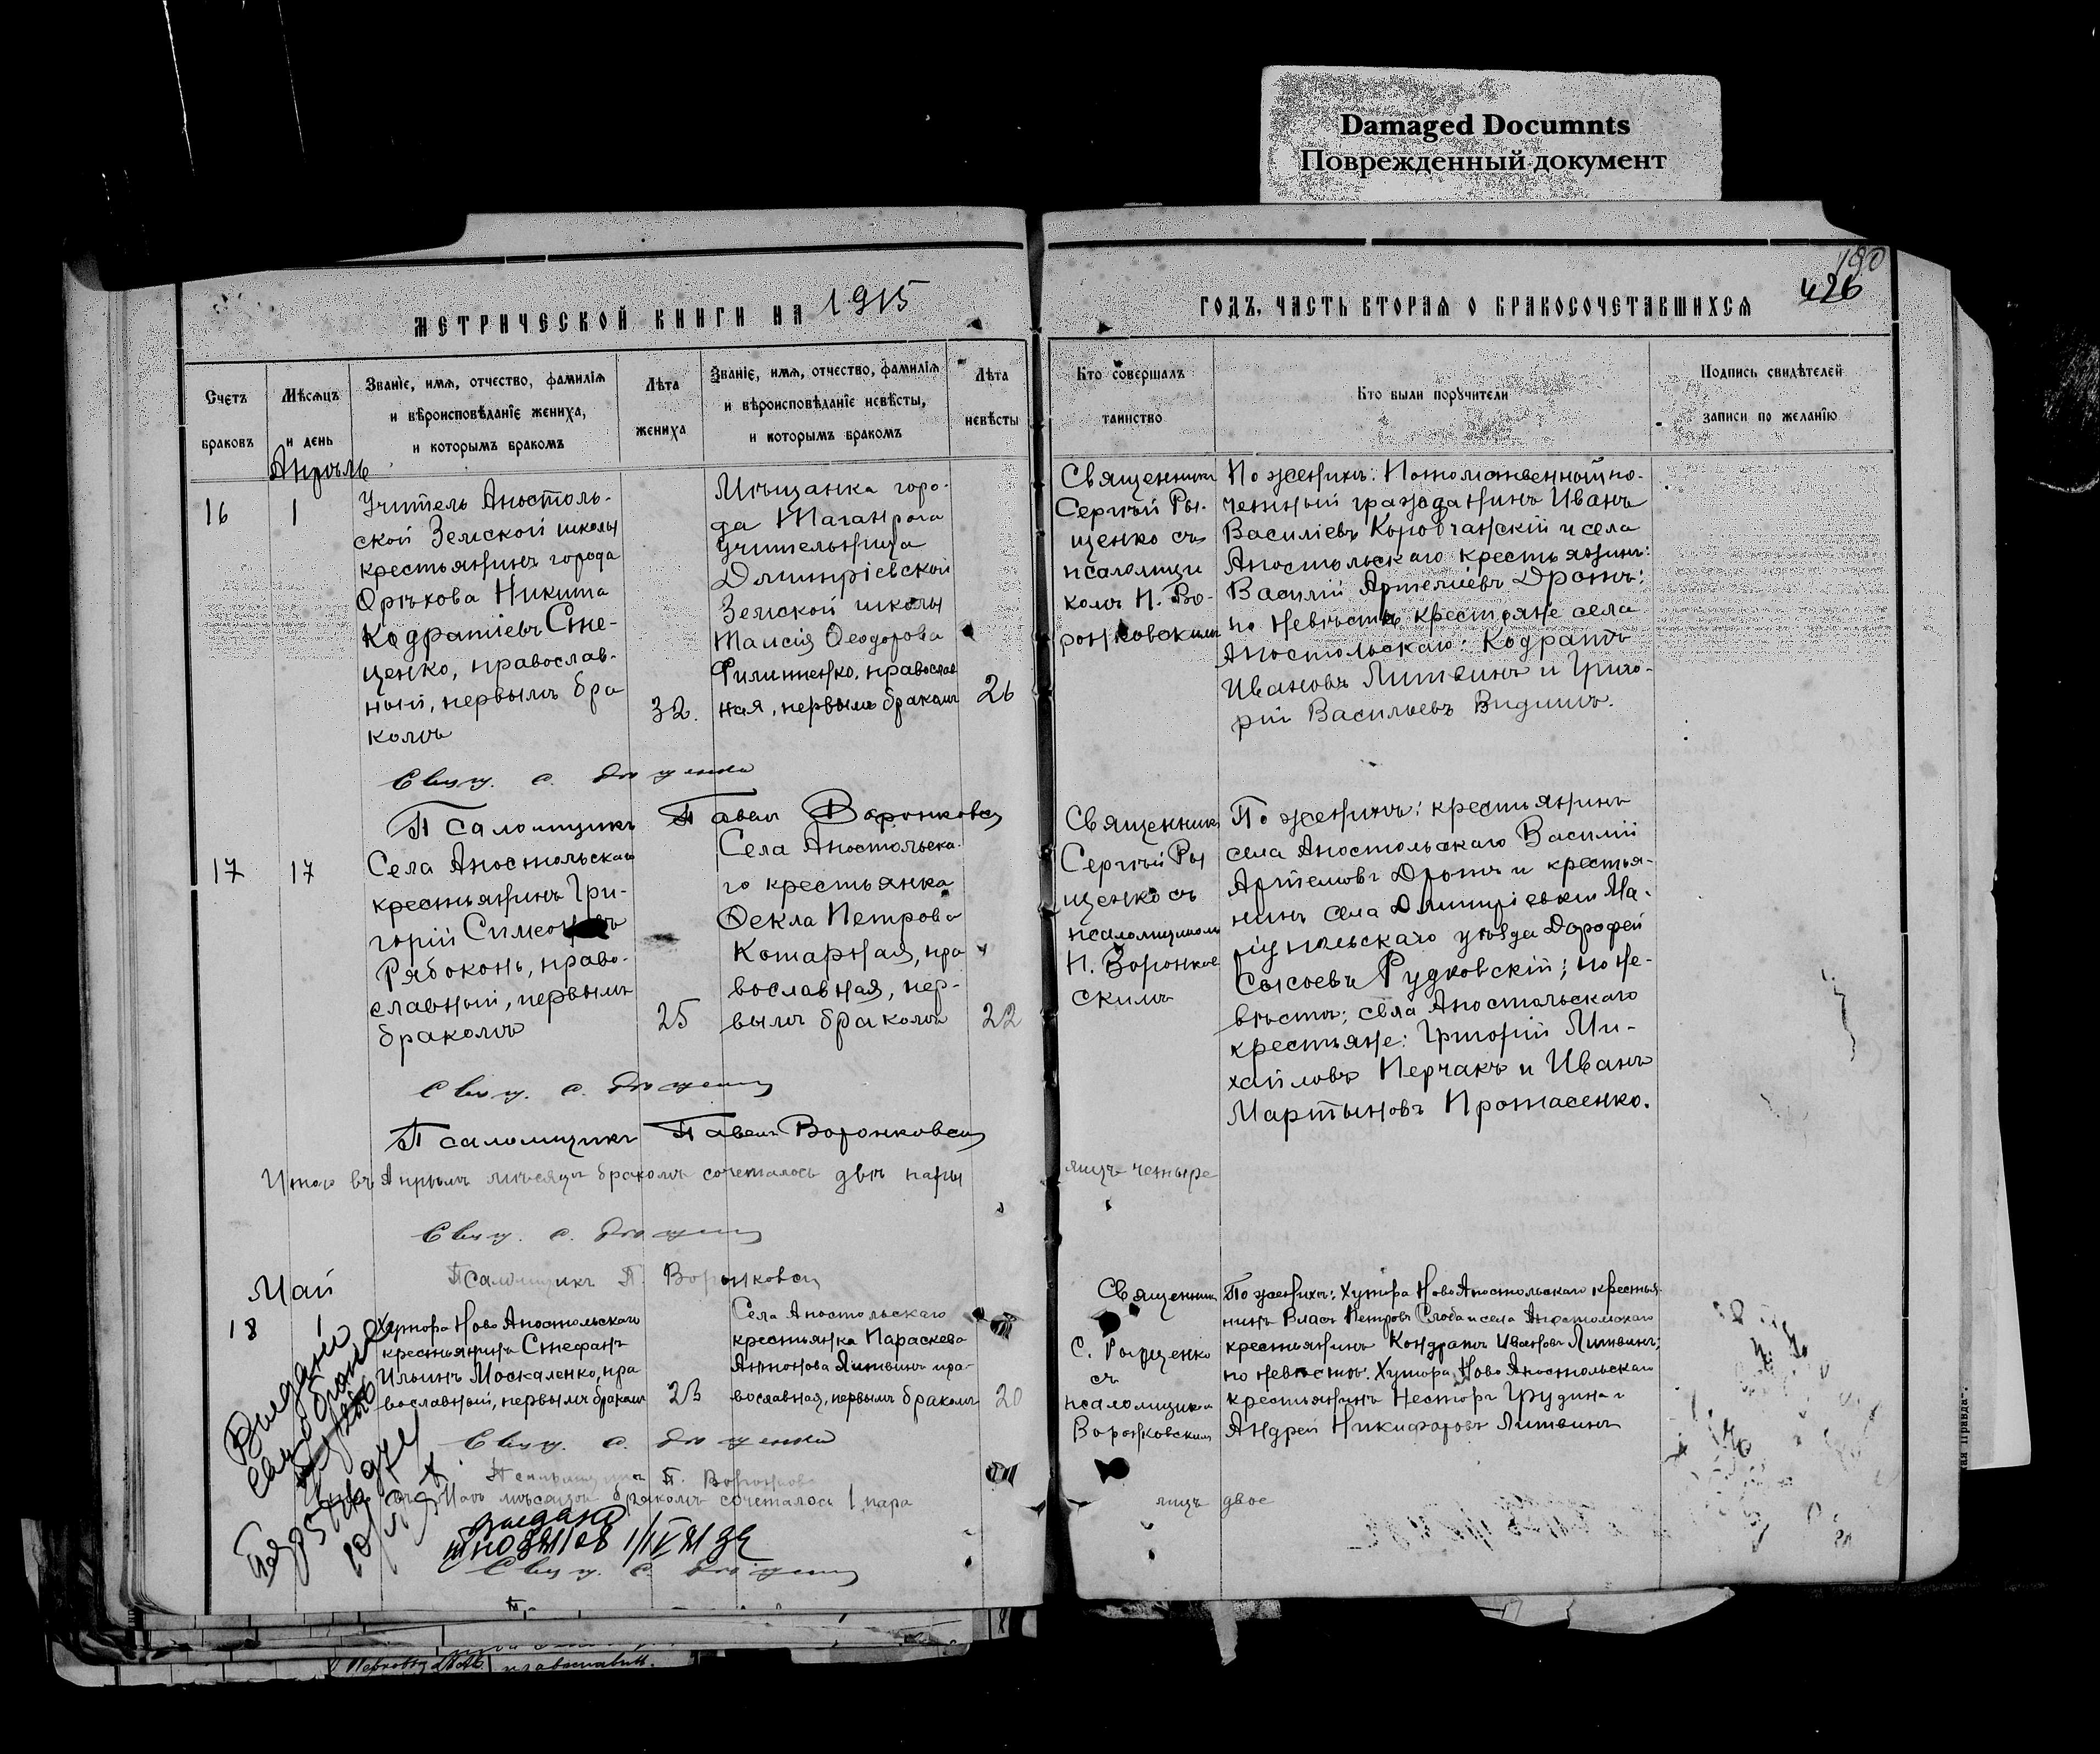 Damaged Documnts
Поврежденный документ
190
426
МЕТРИЧЕСКОЙ КНИГИ НА 1915
ГОДЪ, ЧАСТЬ ВТОРАЯ О БРАКОСОЧЕТАВШИХСЯ
Счетъ
браковъ
Мѣсяцъ
и день
Званіе, имя, отчество, фамилія
и вѣроисповѣданіе жениха,
и которымъ бракомъ
Лѣта
жениха
Званіе, имя, отчество, фамилія
и вѣроисповѣданіе невѣсты,
и которымъ бракомъ
Лѣта
невѣсты
Кто совершалъ
таинство
Кто были поручители
Подпись свидѣтелей
записи по желанію
Апрѣль
16
1
Учитель Апостоль-
ской Земской школы
крестьянинъ города
Орѣхова Никита
Кодратіевъ Сте-
ценко, православ-
ный, первымъ бра
комъ
32.
Мѣщанка горо-
да Таганрога
учительница
Дмитріевской
Земской школы
Таисія Ѳеодорова
Филипенко, православ
ная, первымъ бракомъ
26
Священникъ
Сергѣй Ры-
щенко съ
псаломщи
комъ П. Во-
ронковскимъ
По женихѣ: Потомственный по-
четный гражданинъ Иванъ
Василіевъ Коробчанскій и села
Апостольскаго крестьянинъ:
Василій Артеміевъ Дронъ;
по невѣстѣ крестьяне села
Апостольскаго: Кодратъ
Ивановъ Литвинъ и Григо-
рій Васильевъ
Свящ. С.
Псаломщикъ Павелъ Воронковскій
17
17
Села Апостольскаго
крестьянинъ Гри-
горій Симеоновъ
Рябоконь, право-
славный, первымъ
бракомъ
25
Села Апостольска-
го крестьянка
Ѳекла Петрова
Котарная, пра
вославная, пер-
вымъ бракомъ
22
Священникъ
Сергѣй Ры
щенко съ
псаломщикомъ
П. Воронков
скимъ
По женихѣ: крестьянинъ
села Апостольскаго Василій
Артемовъ Дронъ и крестья-
нинъ села Дмитріевки Ма-
ріупольскаго уѣзда Дорофей
Сысоевъ Рудковскій; по не-
вѣстѣ; села Апостольскаго
крестьяне: Григорій Ми-
хайловъ Перчакъ и Иванъ
Мартыновъ Протасенко.
Свящ. С.
Псаломщикъ Павелъ Воронковскій
Итого въ Апрѣлѣ мѣсяцѣ бракомъ сочеталось двѣ пары
лицъ четыре
Свящ. С.
Псаломщикъ П. Воронковскій
Май
18
1
Хутора Ново Апостольскаго
крестьянинъ Стефанъ
Ильинъ Москаленко, пра
вославный, первымъ бракомъ
23
Села Апостольскаго
крестьянка Параскева
Антонова Литвинъ пра-
вославная, первымъ бракомъ
20
Священникъ
С. Рыщенко
съ
псаломщикомъ
Воронковскимъ
По женихѣ: Хутора Ново Апостольскаго крестья-
нинъ Власъ Петровъ Слоба и села Апостольскаго
крестьянинъ Кондратъ Ивановъ Литвинъ;
по невѣстѣ: Хутора Ново Апостольскаго
крестьянинъ Несторъ Грудина и
Андрей Никифоровъ Литвинъ
Свящ. С.
Псаломщикъ П. Воронковскій
Маѣ мѣсяцѣ бракомъ сочеталось 1 пара
лицъ двое
Свящ. С.